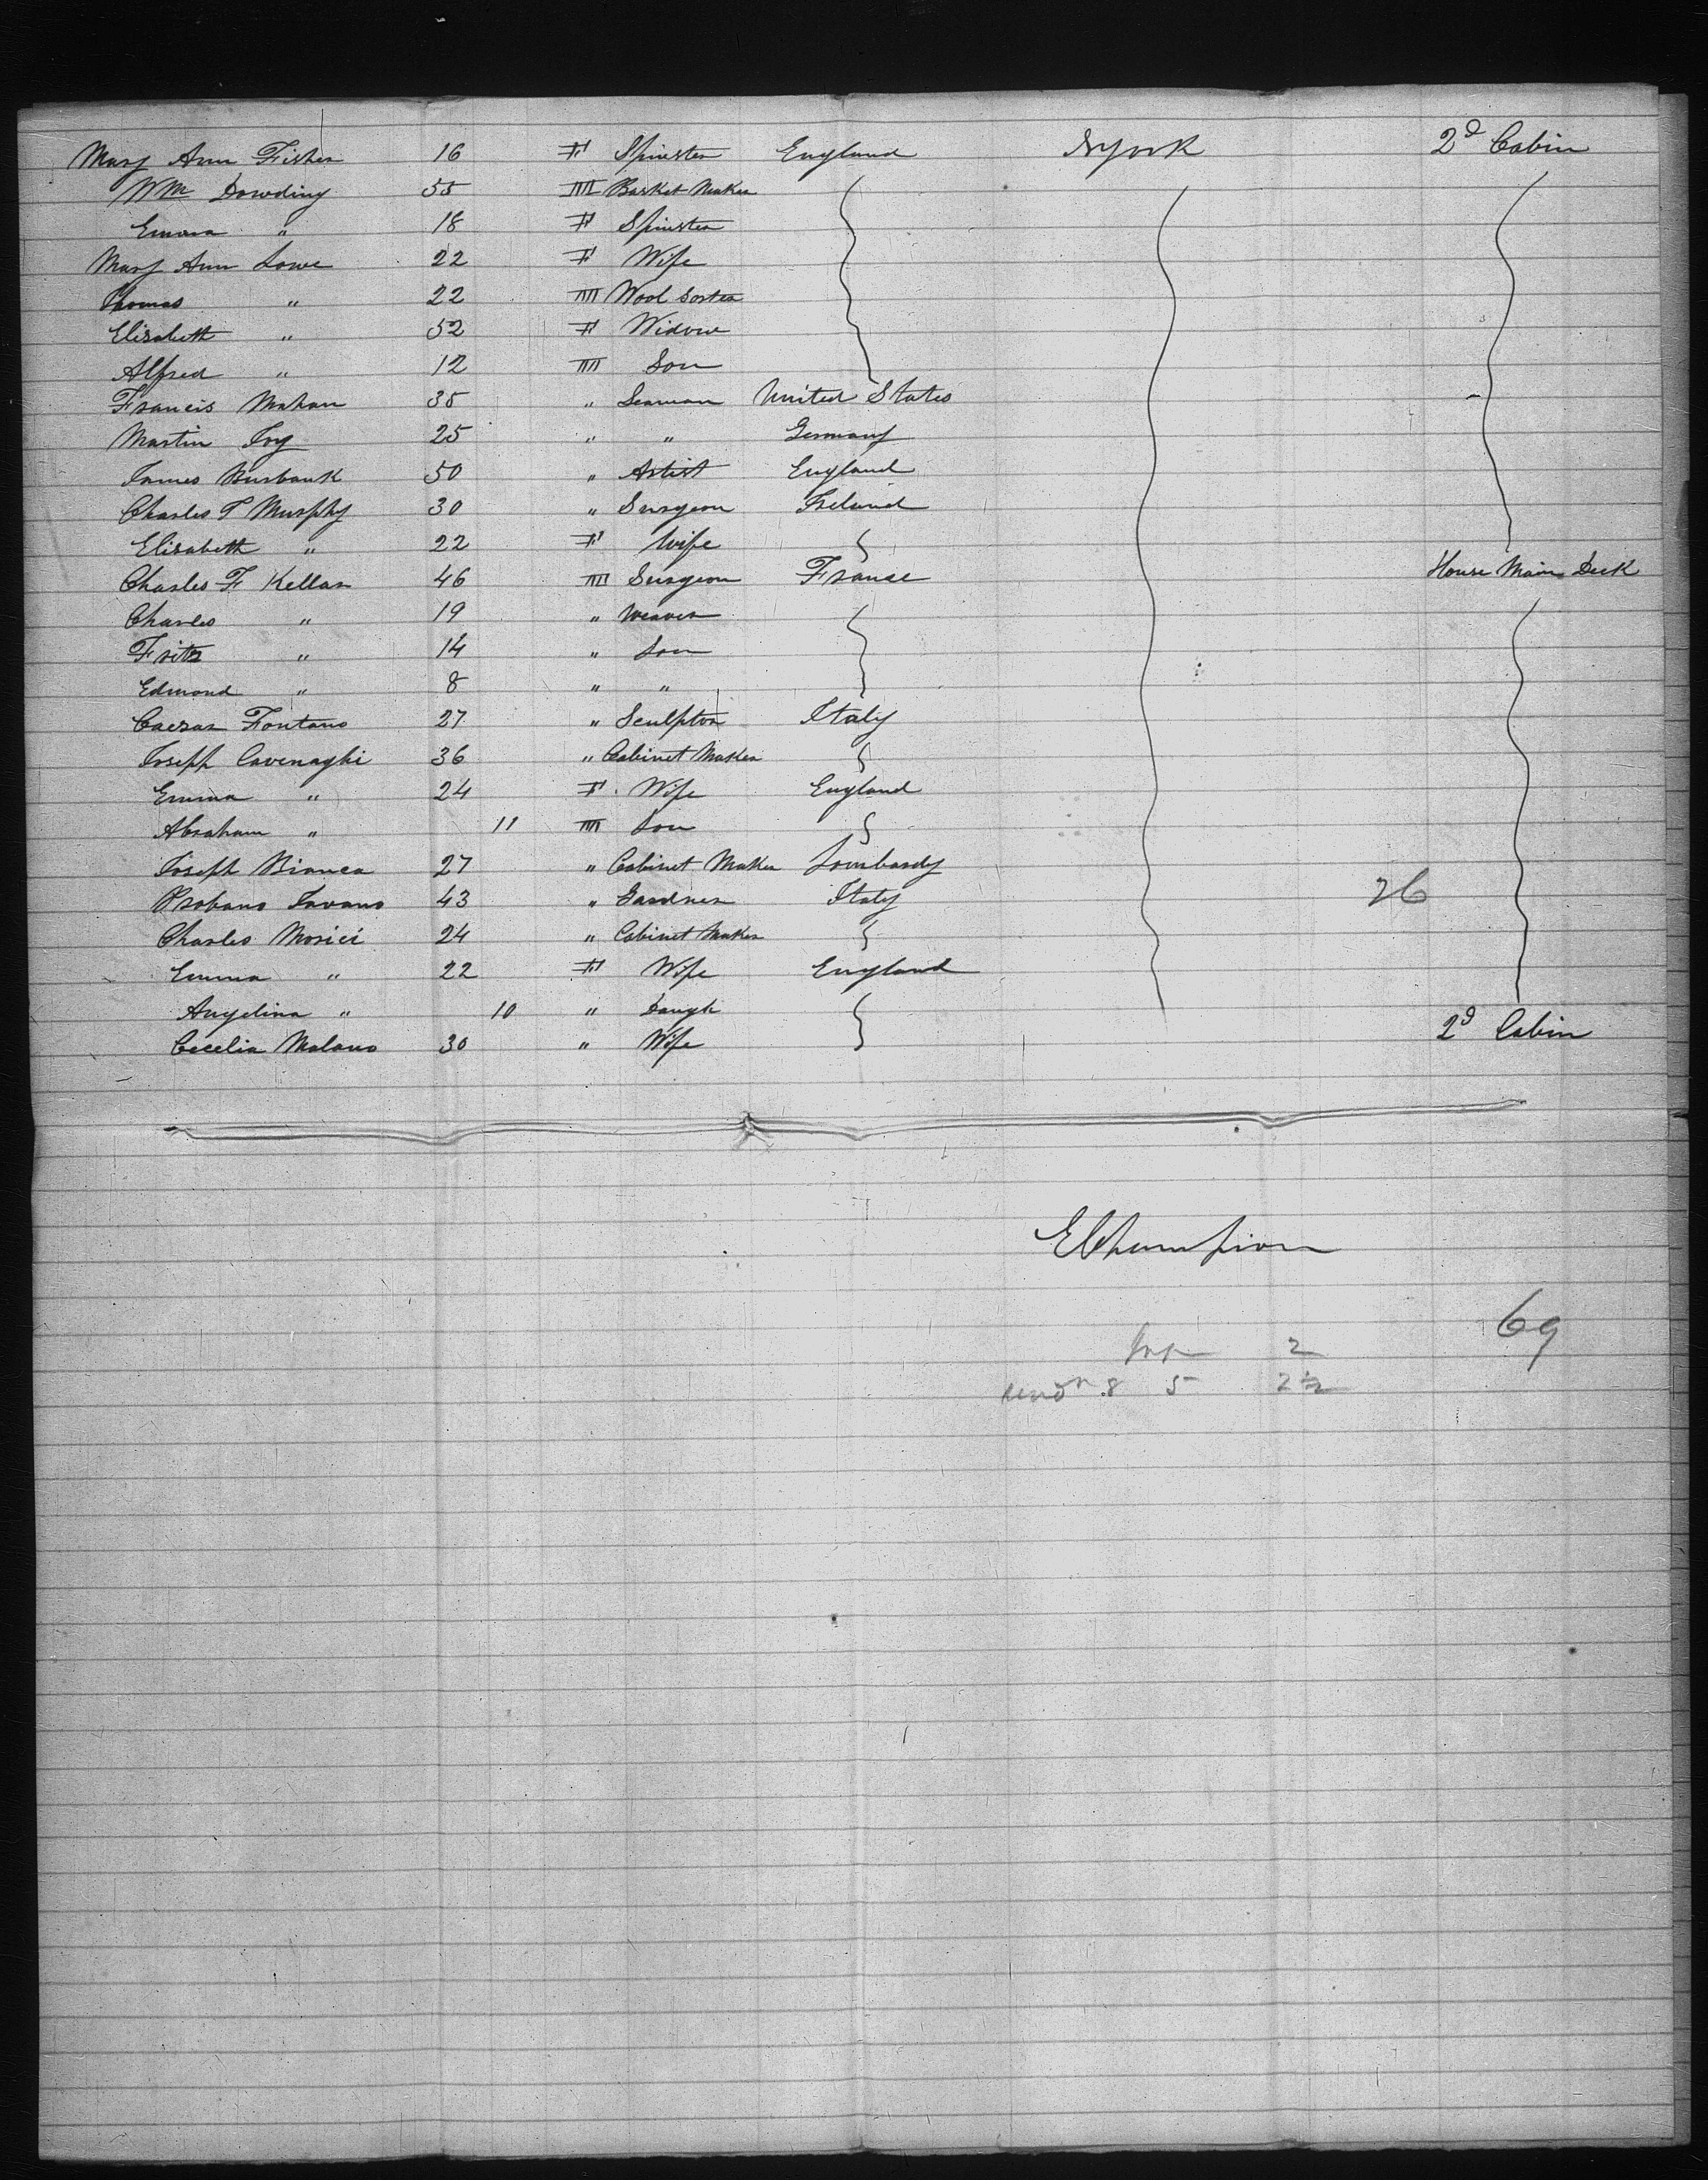 Mary Ann Fisher 16 F Spinster England NYork 2d Cabin
Wm Dowding 55 M Basket Maker
Emma " 18 F Spinster
Mary Ann Lowe 22 F Wife
Thomas " 22 M Wool Sorter
Elizabeth " 52 F Widow
Alfred " 12 M Son
Francis Mahan 35 " Seaman United States
Martin Foy 25 " " Germany
James Burbank 50 " Artist England
Charles T Murphy 30 " Surgeon Ireland
Elizabeth " 22 F Wife
Charles F Kellar 46 M Surgeon France House Main Deck
Charles " 19 " Weaver
Fritz " 14 " Son
Edmond " 8 " "
Caesar Fontano 27 " Sculptor Italy
Joseph Cavenaghi 36 " Cabinet Maker
Emma " 24 F Wife England
Abraham " 11 M Son
Joseph Bianca 27 " Cabinet Maker Lombardy
Probano Tavano 43 " Gardner Italy 26
Charles Morici 24 " Cabinet Maker
Emma " 22 F Wife England
Angelina " 10 " Daugh
Cecelia Malano 30 " Wife 2d Cabin
E Champion
69
2
8 5 2